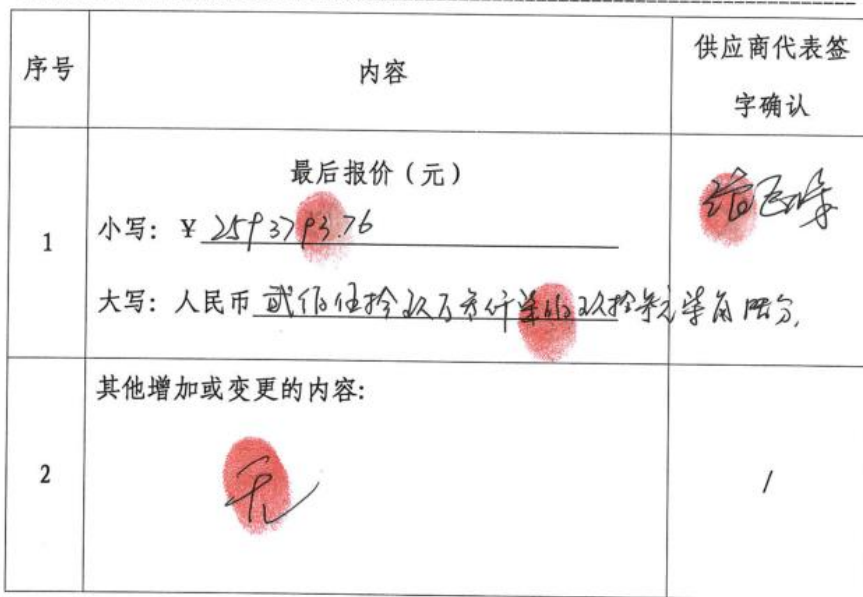 序号
内容
供应商代表签
字确认
1
最后报价（元）
小写：¥ 2593793.76
大写：人民币 贰佰伍拾玖万叁仟柒佰玖拾叁元柒角陆分
2
其他增加或变更的内容：
无
/